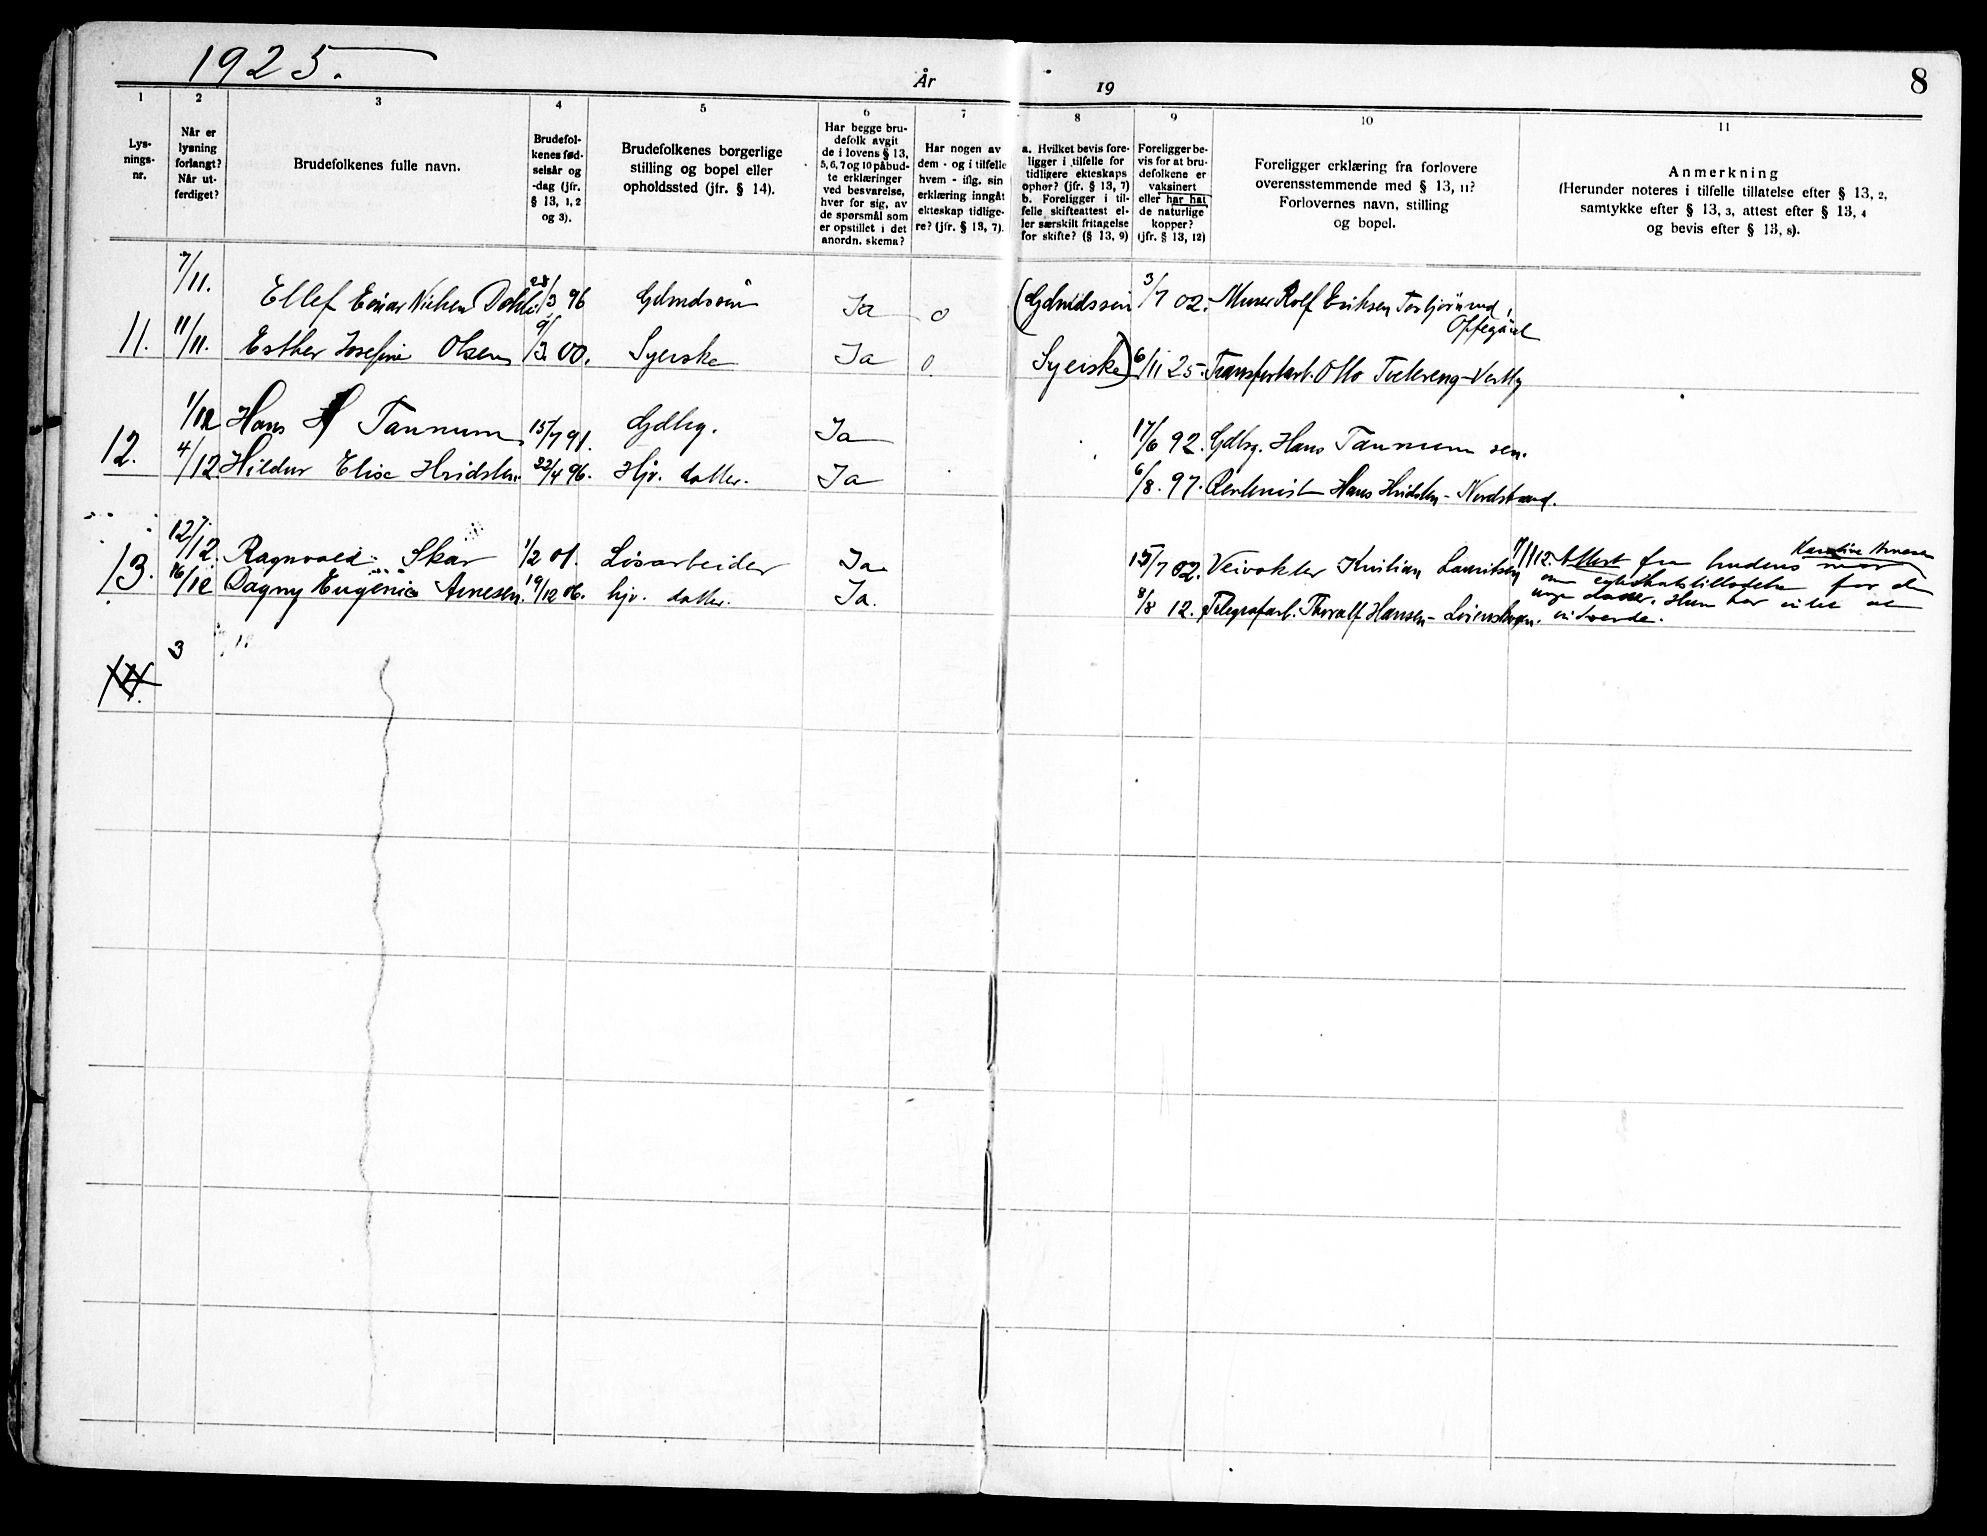 1925.
År
19
8
1
Lys-
nings-
nr.
2
Når er
lysning
forlangt?
Når ut-
ferdiget?
3
Brudefolkenes fulle navn.
4
Brudefol-
kenes fød-
selsår og
-dag (jfr.
§ 13, 1, 2
og 3).
5
Brudefolkenes borgerlige
stilling og bopel eller
opholdssted (jfr. § 14).
6
Har begge bru-
defolk avgit
de i lovens § 13,
5, 6, 7 og 10 påbud-
te erklæringer
ved besvarelse,
hver for sig, av
de spørsmål som
er opstillet i det
anordn. skema?
7
Har nogen av
dem - og i tilfelle
hvem - iflg. sin
erklæring inngåt
ekteskap tidlige-
re? (jfr. § 13, 7).
8
a. Hvilket bevis fore-
ligger i tilfelle for
tidligere ekteskaps
ophør? (jfr. § 13, 7)
b. Foreligger i til-
felle skifteattest el-
ler særskilt fritagelse
for skifte? (§ 13, 9)
9
Foreligger be-
vis for at bru-
defolkene er
vaksinert
eller har hat
de naturlige
kopper?
(jfr. § 13, 12)
10
Foreligger erklæring fra forlovere
overensstemmende med § 13, 11?
Forlovernes navn, stilling
og bopel.
11
Anmerkning
(Herunder noteres i tilfelle tillatelse efter § 13, 2,
samtykke efter § 13, 3, attest efter § 13, 4
og bevis efter § 13, 8).
7/11. Ellef Einar Nielsen Dahl 28/3 96 Ja 0 3/7 02. Murer Rolf Eriksen Torbjørnrud,
Oppegård
11. 11/11. Esther Josefine Olsen 9/3. 00. Syerske Ja 0. Syerske) 6/11 25. Transportarb. Otto Tveter­eng - Vestby
1/12 Hans H Tannum 15/7 91. Gdbrg. Ja 17/6 92. Gdbrg. Hans Tannum sen.
12. 4/12. Hildur Elise Hvidsten 22/4 96. Hjv. datter. Ja 6/8. 97. Hans Hvidsten - Nordstrand.
12/12. Ragnvald Skar 1/2 01. Løsarbeider Ja 15/7 02. Veivokter Kristian Lauritsen 7/12. Attest fra brudens mor Karoline Arnesen
13. 16/12 Dagny Eugenie Arnesen. 19/12 06. hjv. datter. Ja. 8/8 12. Telegrafarb. Thoralf Hansen - Lørenskogen.
om egteskabstilladelse for den
unge datter. Hun har intet at
indvende.
3
14.